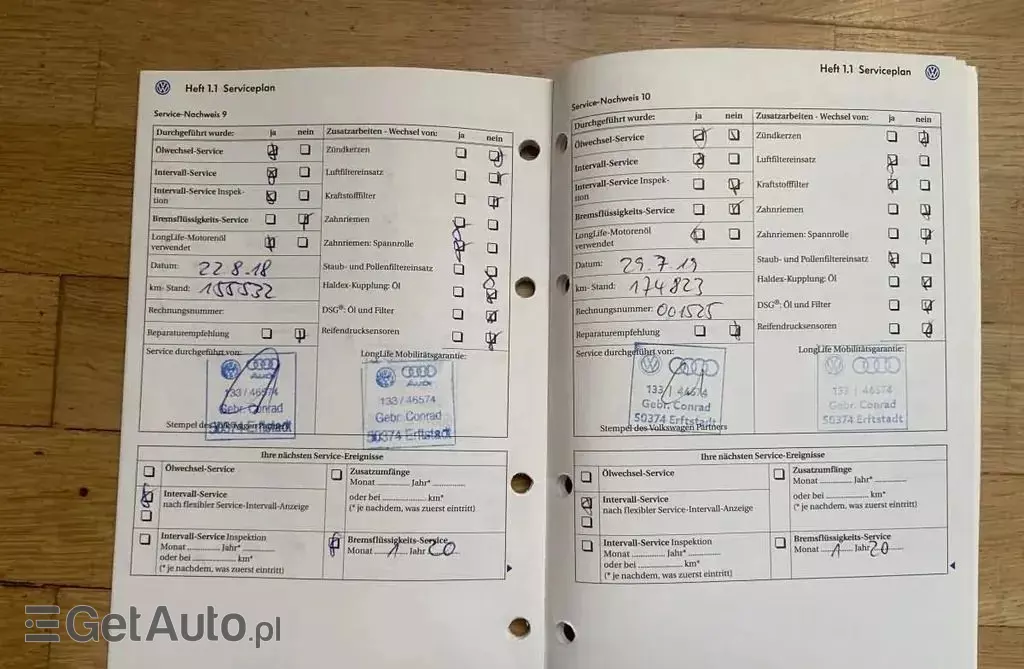 Heft 1.1 Serviceplan
Service-Nachweis 9
Durchgeführt wurde: ja nein
Zusatzarbeiten - Wechsel von: ja nein
Ölwechsel-Service
Zündkerzen
Intervall-Service
Luftfiltereinsatz
Intervall-Service Inspek-
tion
Kraftstofffilter
Bremsflüssigkeits-Service
Zahnriemen
LongLife-Motorenöl
verwendet
Zahnriemen: Spannrolle
Datum: 22.8.18
Staub- und Pollenfiltereinsatz
km- Stand: 155532
Haldex-Kupplung: Öl
Rechnungsnummer:
DSG®: Öl und Filter
Reparaturempfehlung
Reifendrucksensoren
Service durchgeführt von:
LongLife Mobilitätsgarantie:
Audi
133 / 46574
Gebr. Conrad
50374 Erftstadt
Stempel des Volkswagen Partners
Audi
133 / 46574
Gebr. Conrad
50374 Erftstadt
Ihre nächsten Service-Ereignisse
Ölwechsel-Service
Zusatzumfänge
Monat ............ Jahr* ............
Intervall-Service
nach flexibler Service-Intervall-Anzeige
oder bei ............ km*
(* je nachdem, was zuerst eintritt)
Intervall-Service Inspektion
Monat ............ Jahr* ............
oder bei ............ km*
(* je nachdem, was zuerst eintritt)
Bremsflüssigkeits-Service
Monat 1 Jahr 20
Heft 1.1 Serviceplan
Service-Nachweis 10
Durchgeführt wurde: ja nein
Zusatzarbeiten - Wechsel von: ja nein
Ölwechsel-Service
Zündkerzen
Intervall-Service
Luftfiltereinsatz
Intervall-Service Inspek-
tion
Kraftstofffilter
Bremsflüssigkeits-Service
Zahnriemen
LongLife-Motorenöl
verwendet
Zahnriemen: Spannrolle
Datum: 29.7.19
Staub- und Pollenfiltereinsatz
km- Stand: 174823
Haldex-Kupplung: Öl
Rechnungsnummer: 001525
DSG®: Öl und Filter
Reparaturempfehlung
Reifendrucksensoren
Service durchgeführt von:
LongLife Mobilitätsgarantie:
133 / 46574
Gebr. Conrad
50374 Erftstadt
Stempel des Volkswagen Partners
133 / 46574
Gebr. Conrad
50374 Erftstadt
Ihre nächsten Service-Ereignisse
Ölwechsel-Service
Zusatzumfänge
Monat ............ Jahr* ............
Intervall-Service
nach flexibler Service-Intervall-Anzeige
oder bei ............ km*
(* je nachdem, was zuerst eintritt)
Intervall-Service Inspektion
Monat ............ Jahr* ............
oder bei ............ km*
(* je nachdem, was zuerst eintritt)
Bremsflüssigkeits-Service
Monat 1 Jahr 20
GetAuto.pl